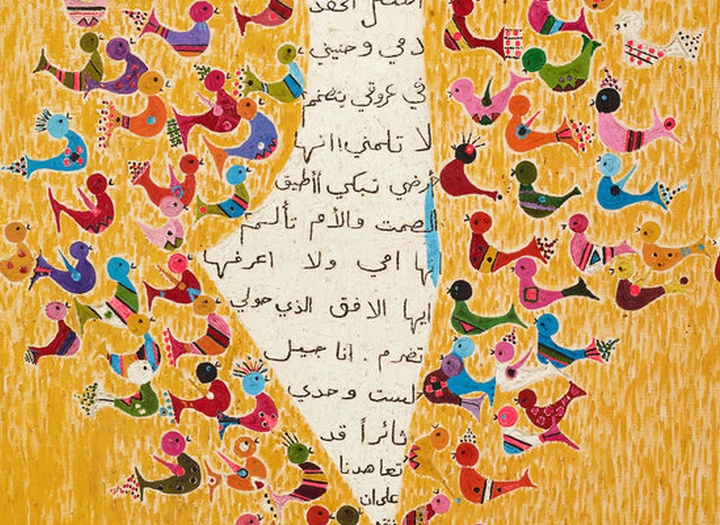 دمي وحنيني
في عروقي يتضخم
لا تلمني!! انها
أرضي تبكي أأطيق
الصمت والأم تألم
انها امي ولا اعرفها
ايها الافق الذي حولي
تضرم . انا جيل
لست وحدي
ثائراً قد
تعاهدنا
على ان